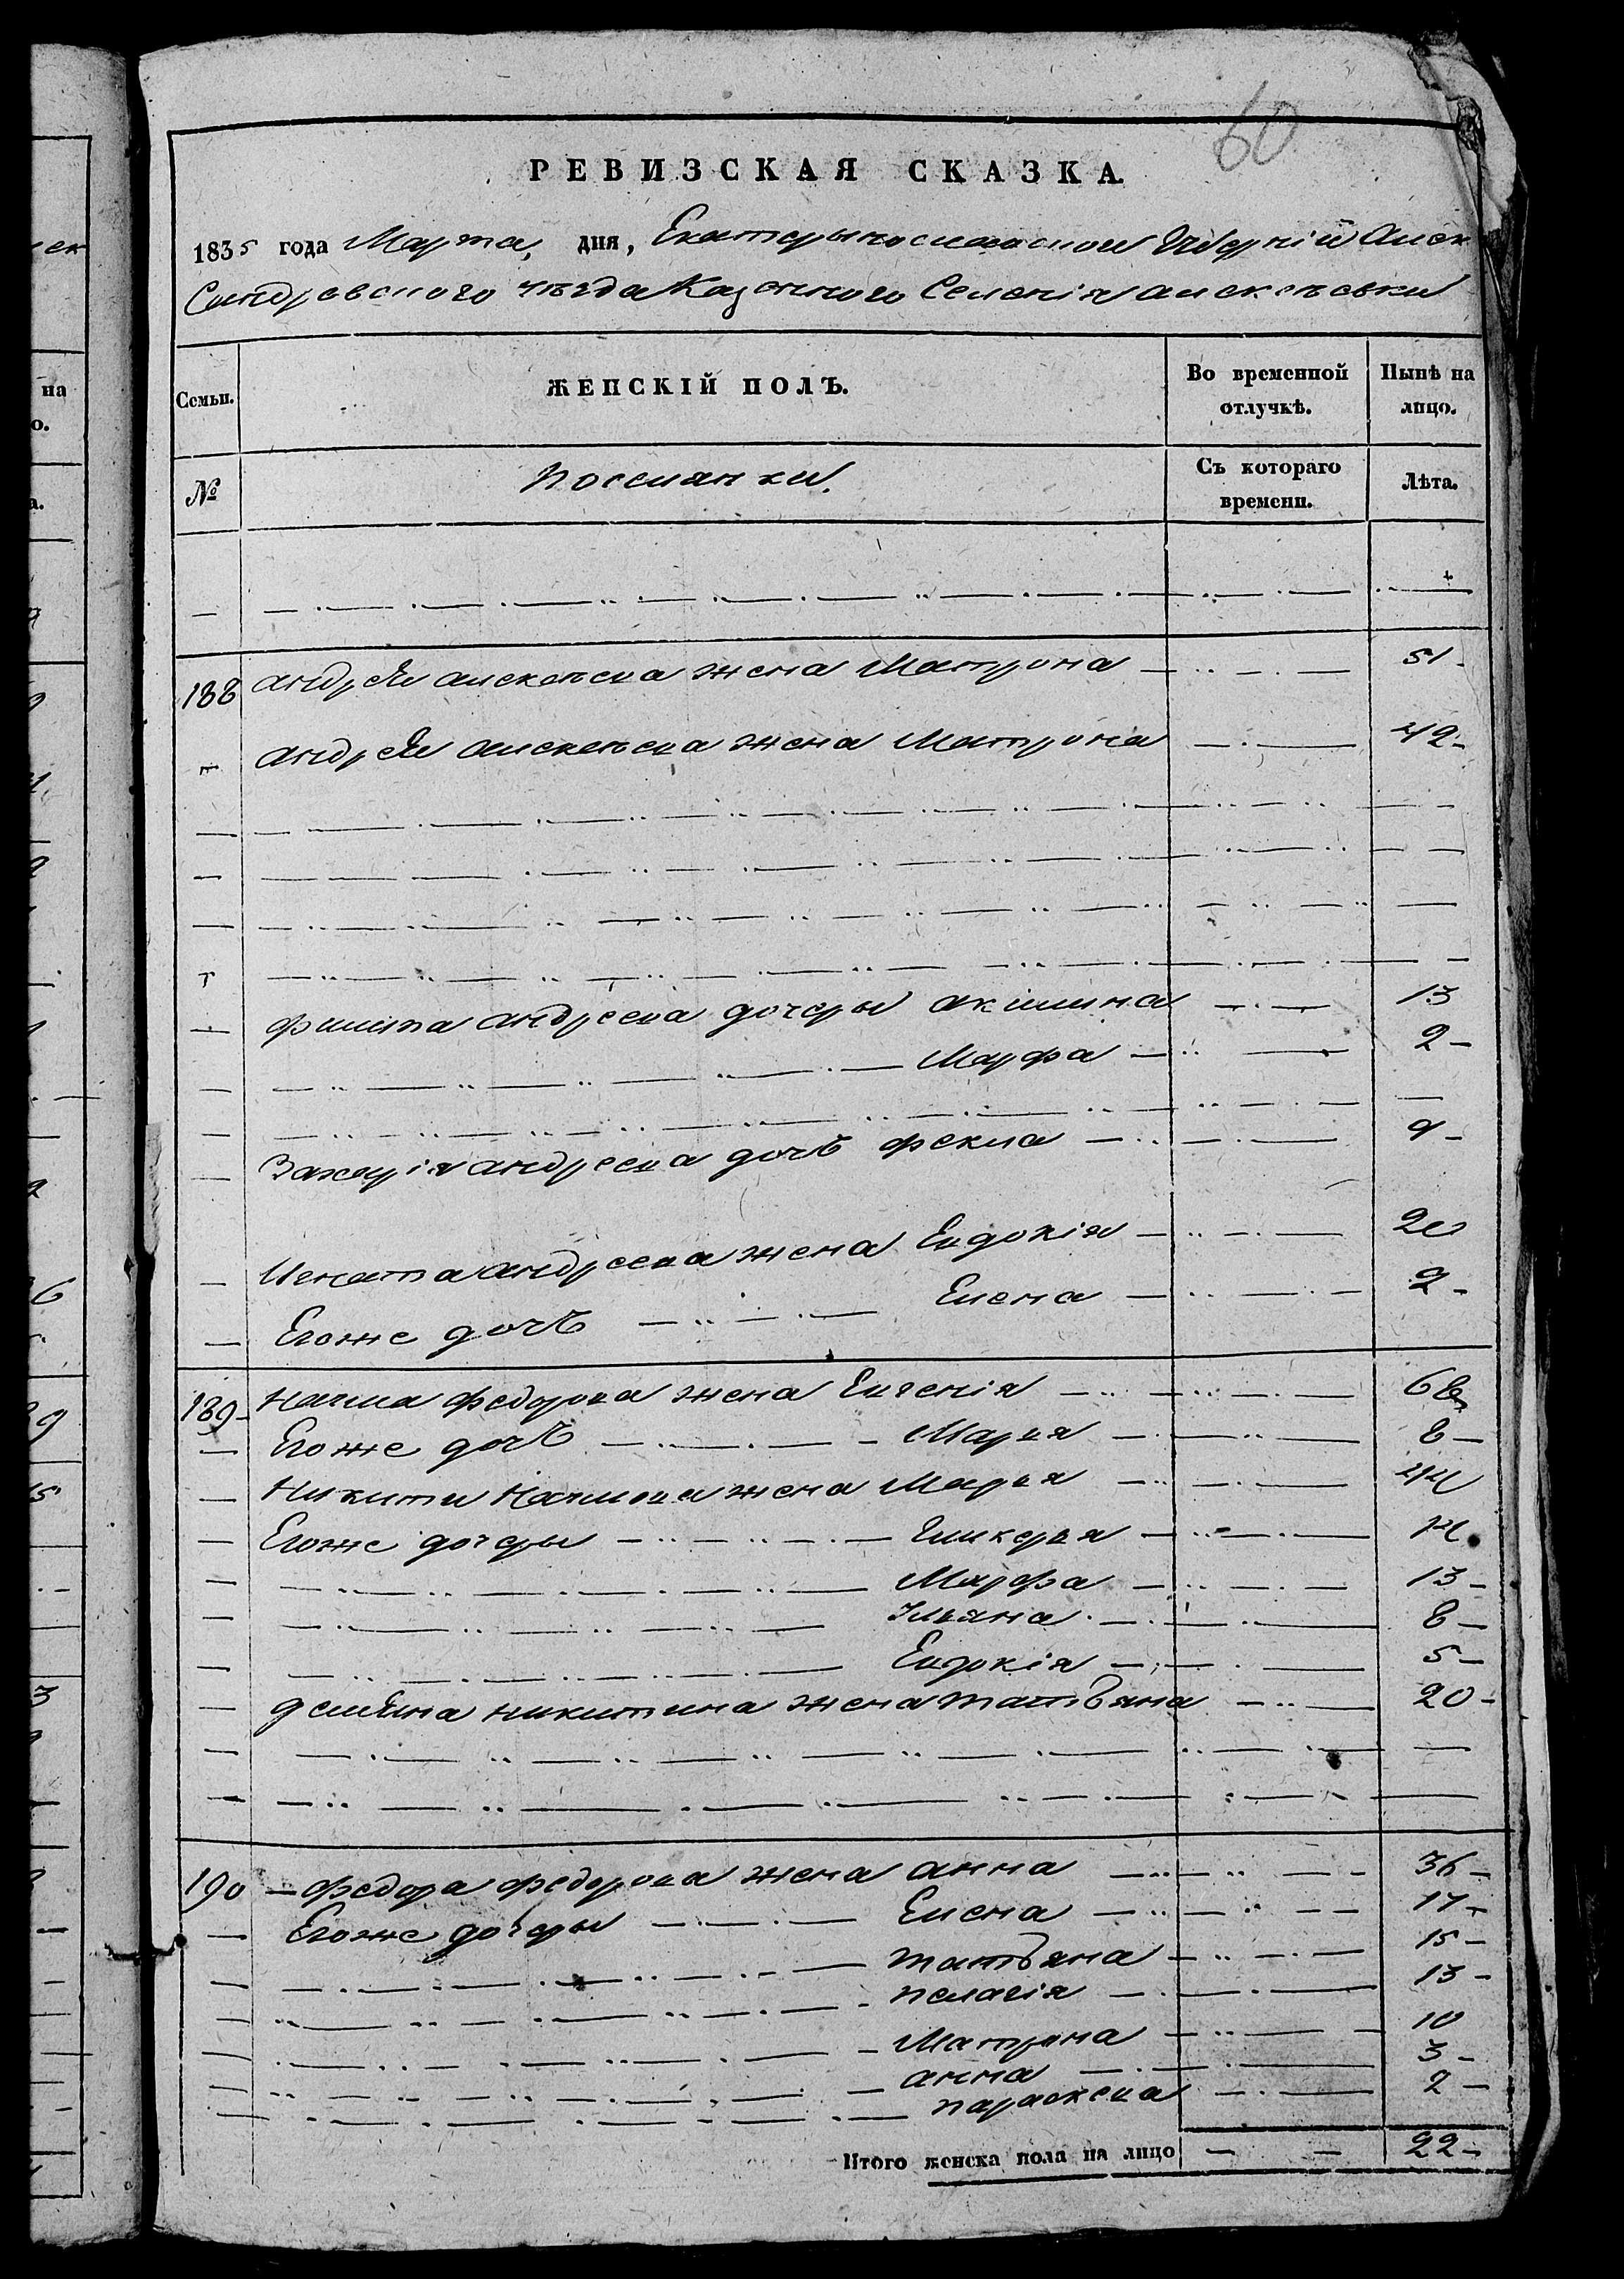 60
РЕВИЗСКАЯ СКАЗКА.
1835 года Марта, дня, Екатеринославской Губерній Алек
сандровского уѣзда Казенного Селенія алексѣевки
Семьи. ЖЕНСКІЙ ПОЛЪ. Во временной отлучкѣ. Нынѣ на лицо.
№ поселянки. Съ котораго времени. Лѣта.
188 андрѣя алексѣева жена Матрона 51
андрѣя алексѣева жена Матрона 42
филипа андреева дочеры акилина 13
Марфа 2
Захарія андреева дочь фекла 9
Игната андреева жена Евдокія 20
Егоже дочь Елена 2
189 наума федорова жена Евгенія
Егоже дочь Марья 8
Никиты Наумова жена Марья 44
Егоже дочеры Гликерья 14
Марфа 13
Ульяна 8
Евдокія 5
демяна никитина жена татьяна 20
190 федора федорова жена анна 36
Егоже дочеры Елена 17
татьяна 15
пелагія 13
Матрона 10
анна 3
параскева 2
Итого женска пола на лицо 22